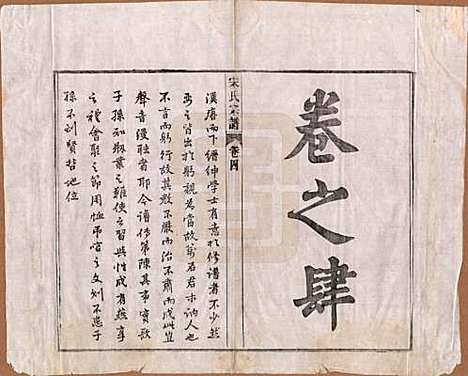 卷之肆
宋氏宗譜 卷四
漢唐而下縉紳學士有意於修譜者不少然
要之皆出於躬視為當故萬石君君未訥人也
不言而躬行故其教不嚴而治不肅而成此豈
聲音漫聒者耶今譜修第陳其事實教
子孫知創業之難使之習與性成有燕享
之禮會聚之節用恤吊喧之文刻不忘乎
孫不到賢哲地位